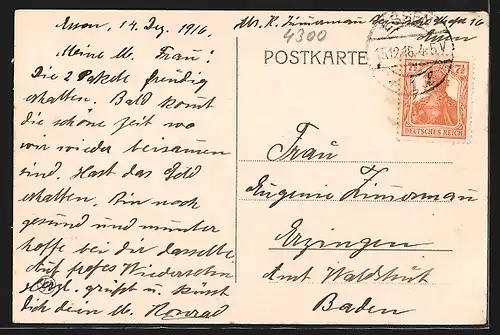 Essen, 14. Dez. 1916.
Meine l. Frau!
Die 2 Pakete freudig
erhalten. Bald komt
die schöne zeit wo
wir wieder beisamen
sind. Hast das Geld
erhalten. Bin noch
gesund und munter
hoffe bei dir dasselbe
Auf frohes Wiedersehn
Herzl. grüßt u. küsst
dich dein l. Konrad
Abs. K. Zimerman
Essen
4300
POSTKARTE
15.12.16. 4-5.V
7½ 7½
DEUTSCHES REICH
Frau
Eugenie Zimerman
Erzingen
Amt Waldshut
Baden